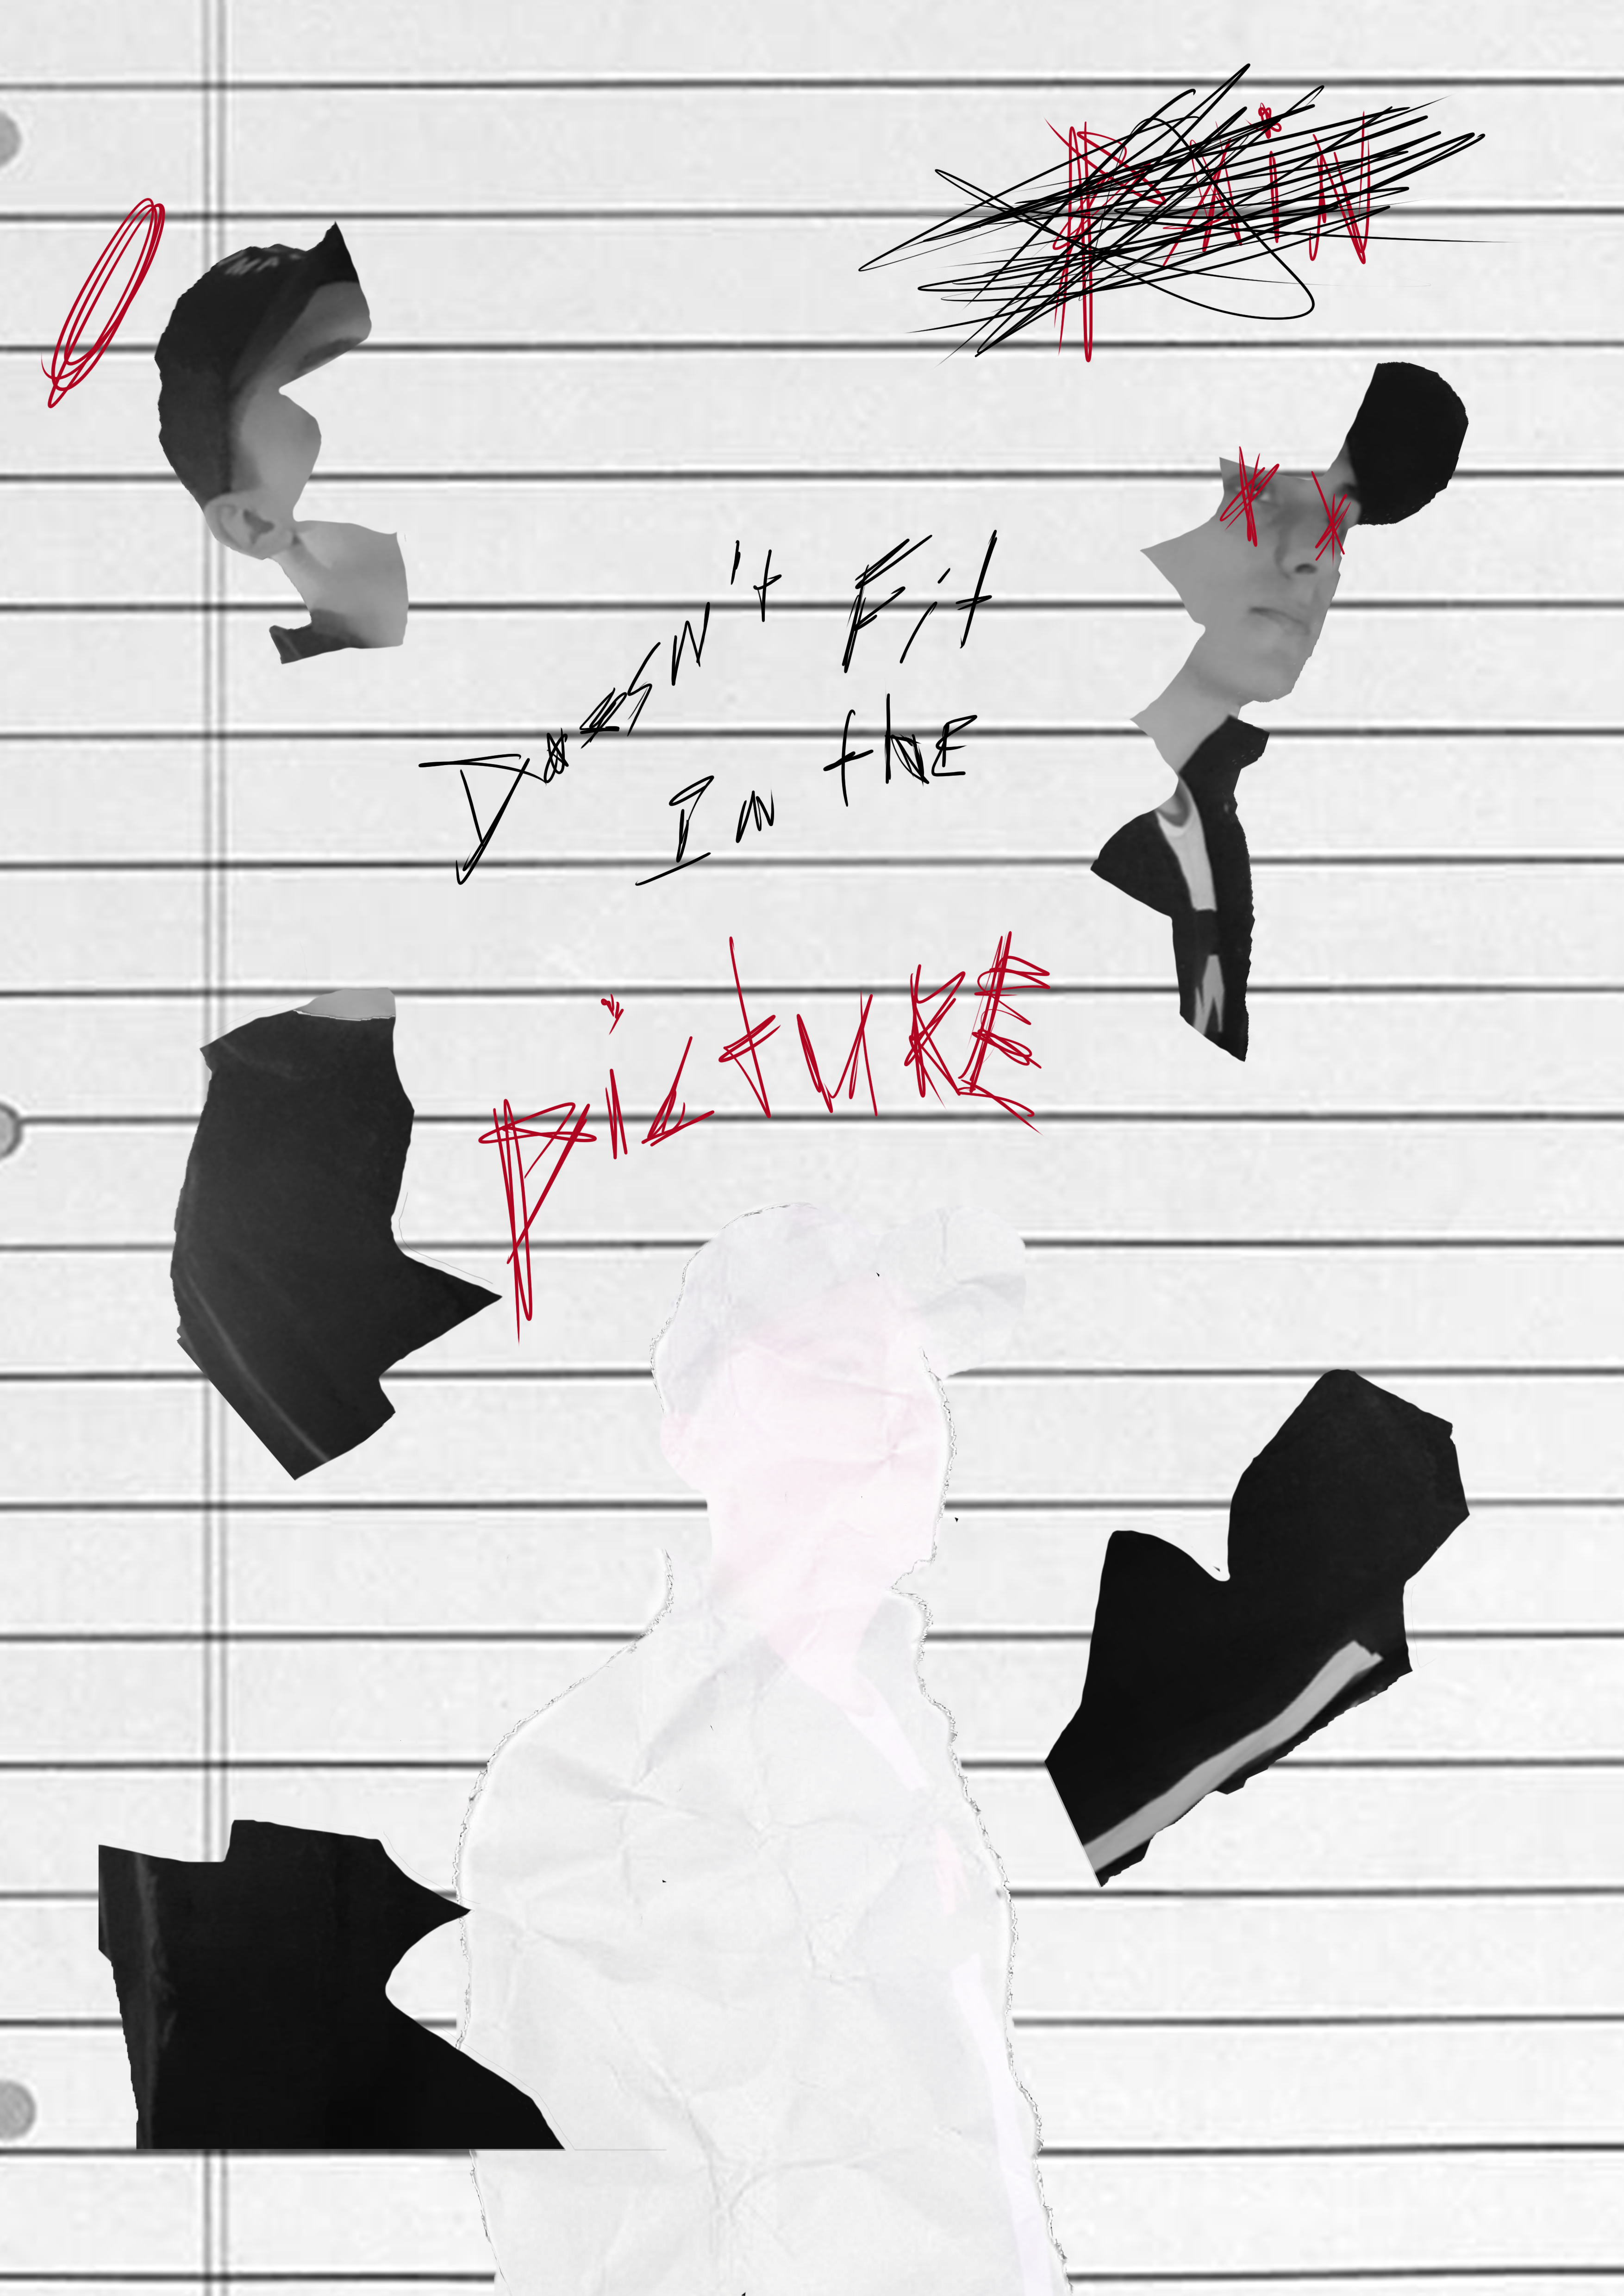 PAiN
Doesn't Fit
In the
PicTURE